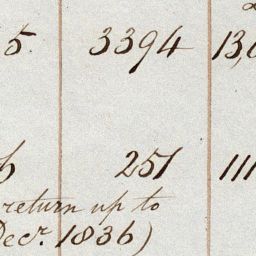 5. 3394 13,
251 111
return up to
Decr. 1836)